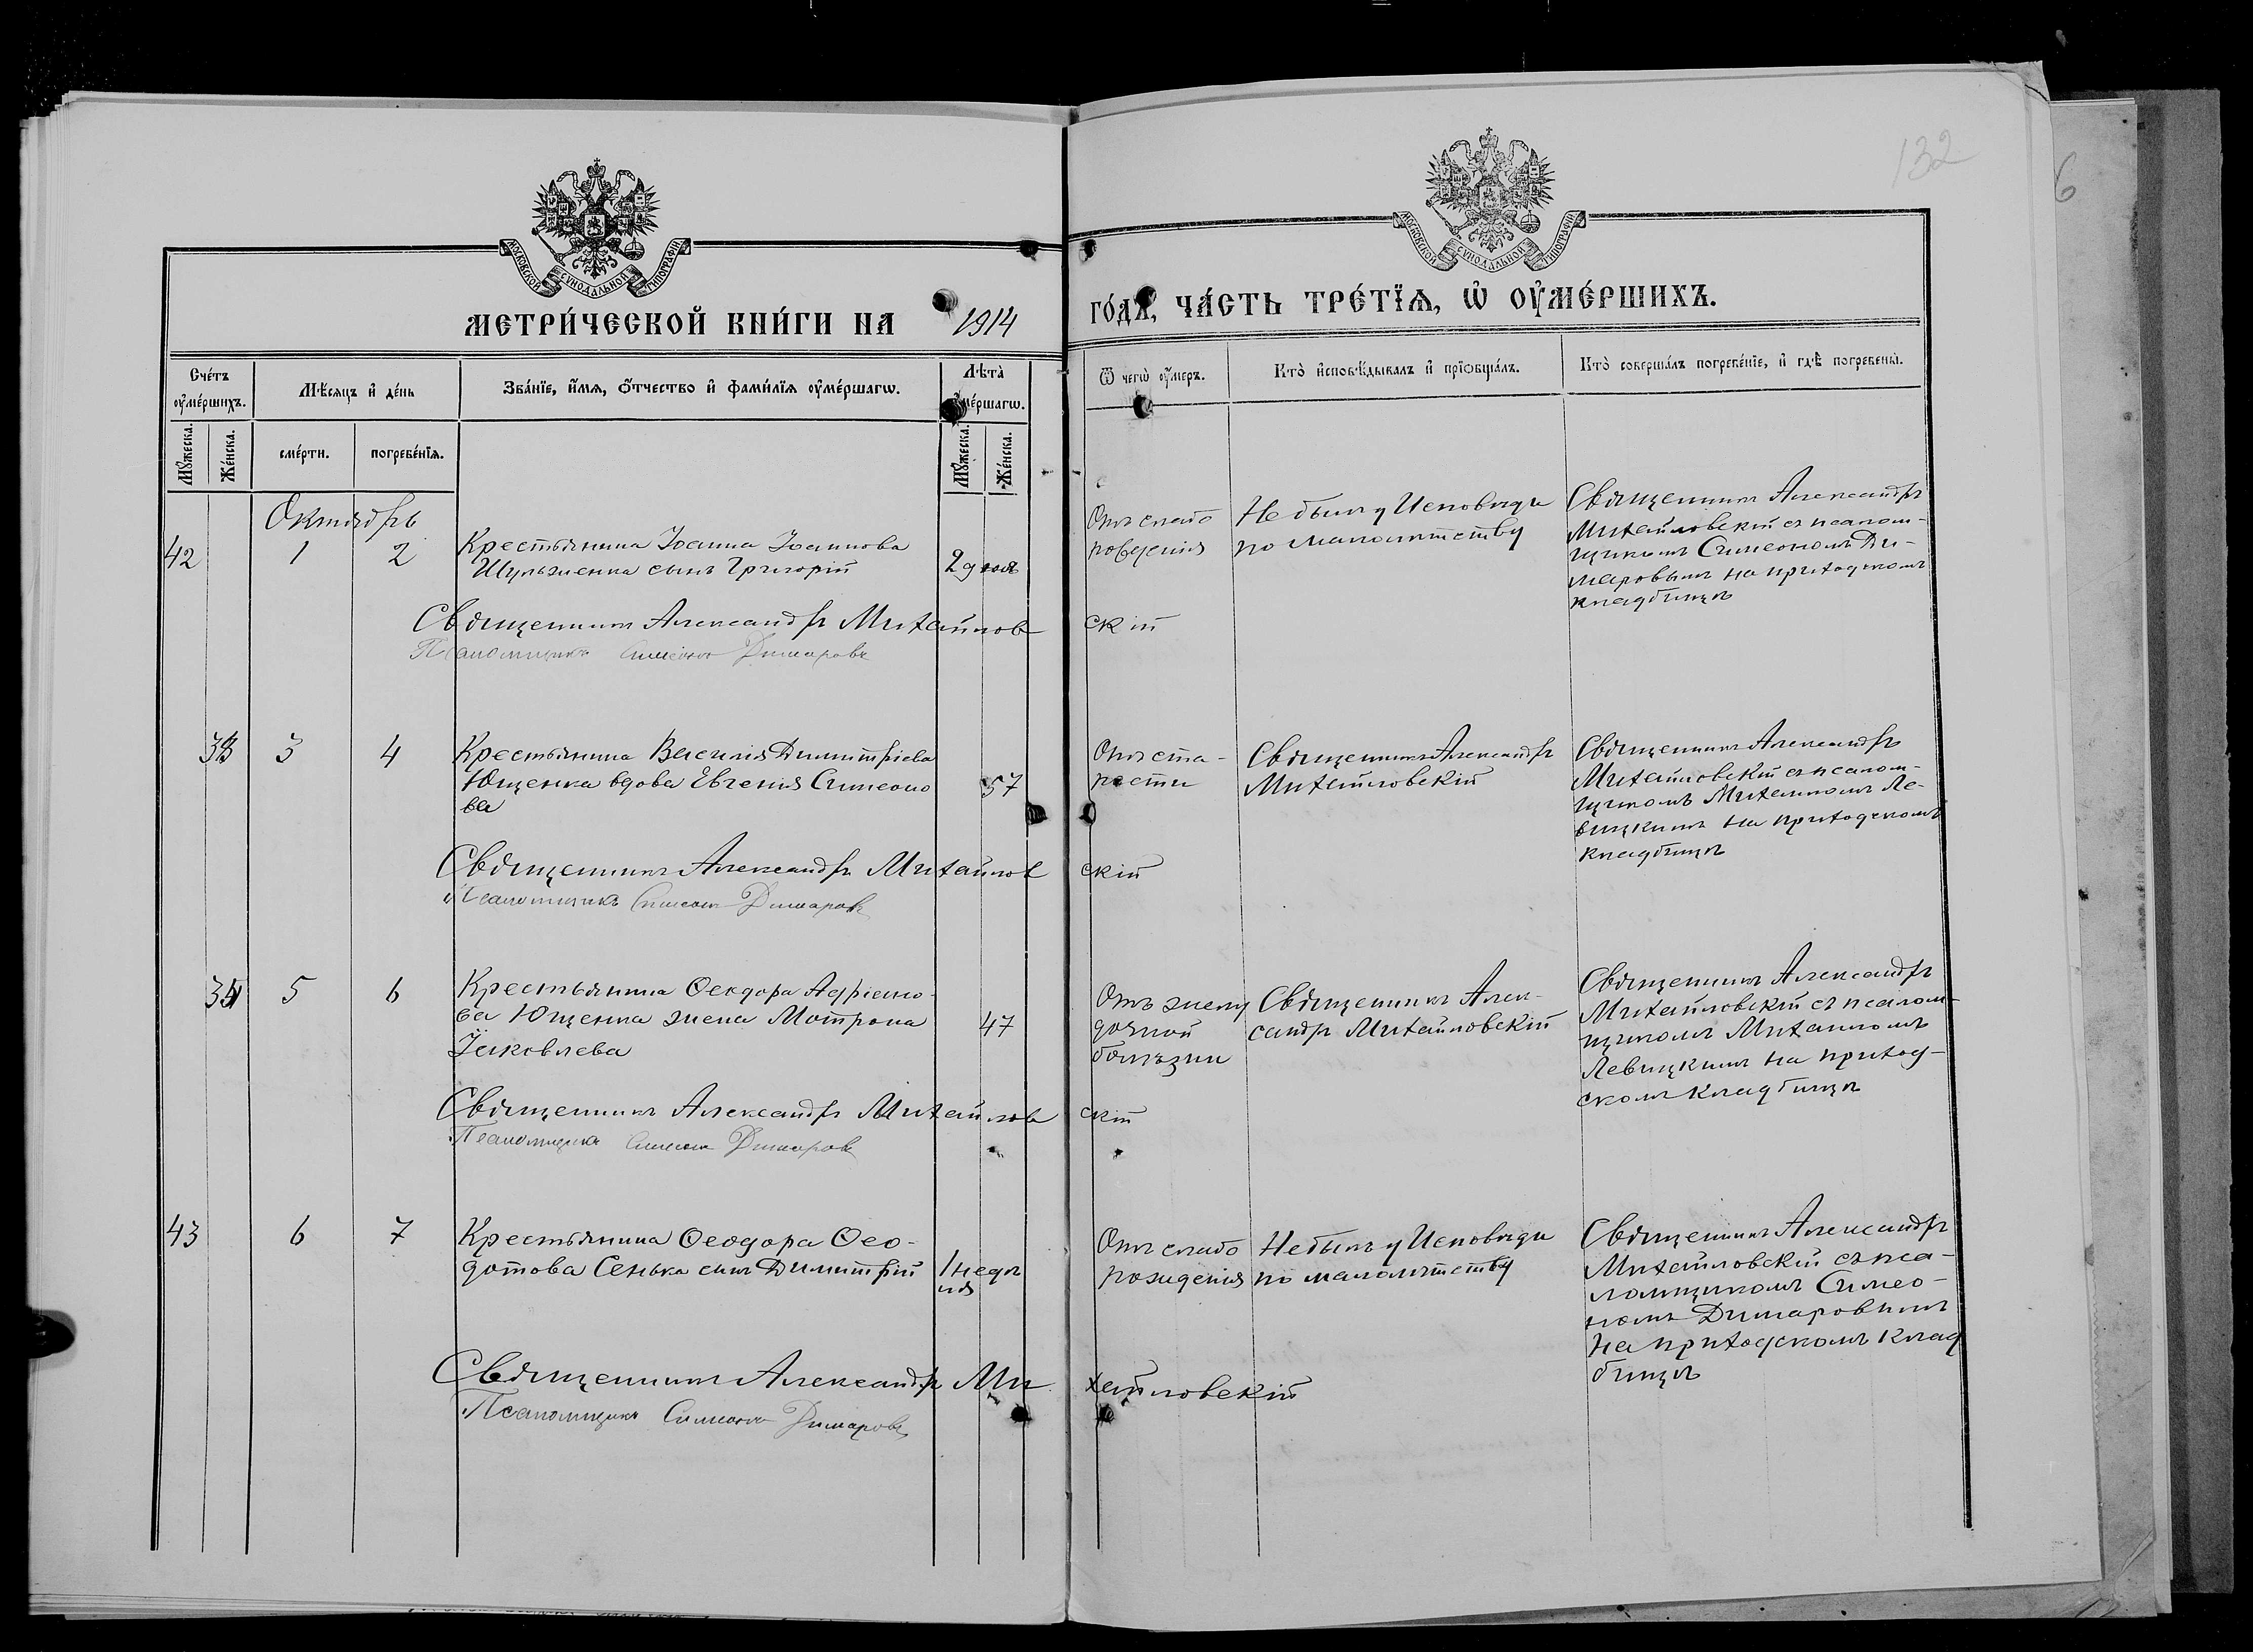 132
6
МОСКОВСКОЙ СѴНОДАЛЬНОЙ ТИПОГРАФІИ
МОСКОВСКОЙ СѴНОДАЛЬНОЙ ТИПОГРАФІИ
МЕТРИ́ЧЕСКОЙ КНИ́ГИ НА 1914
ГО́ДЪ, ЧА́СТЬ ТРЕ́ТЇѦ, Ѽ ОУ҆МЕ́РШИХЪ.
Сче́тъ оу҆ме́ршихъ.
Мѣ́сяцъ и҆ де́нь
Зва́нїе, и҆́мѧ, ѻ҆́тчество и҆ фами́лїѧ оу҆ме́ршагѡ.
Лѣ́та оу҆ме́ршагѡ.
Ѿ чегѡ̀ оу҆́меръ.
Кто̀ и҆сповѣ́дывалъ и҆ прїѡбща́лъ.
Кто̀ соверша́лъ погребе́нїе, и҆ гдѣ̀ погребены̀.
Мꙋ́жеска.
Же́нска.
сме́рти.
погребе́нїѧ.
Мꙋ́жеска.
Же́нска.
Октябрь
42
1
2
Крестьянина Іоанна Іоаннова
Шульженка сынъ Григорій
2 дня
Отъ слабо
рожденія
Не былъ у Исповѣди
по малолѣтству
Священникъ Александръ
Михайловскій съ псалом-
щикомъ Симеономъ Ди-
маровымъ на приходскомъ
кладбищѣ
Священникъ Александръ Михайловскій
Псаломщикъ Симеонъ Димаровъ
33
3
4
Крестьянина Василія Димитріева
Ющенка вдова Евгенія Симеоно
ва
57
Отъ ста-
рости
Священникъ Александръ
Михайловскій
Священникъ Александръ
Михайловскій съ псалом-
щикомъ Михаиломъ Ле-
вицкимъ на приходскомъ
кладбищѣ
Священникъ Александръ Михайловскій
Псаломщикъ Симеонъ Димаровъ
34
5
6
Крестьянина Ѳеодора Адріано-
ва Ющенка жена Мотрона
Іаковлева
47
Отъ желу
дочной
болѣзни
Священникъ Алек-
сандръ Михайловскій
Священникъ Александръ
Михайловскій съ псалом-
щикомъ Михаиломъ
Левицкимъ на приход-
скомъ кладбищѣ
Священникъ Александръ Михайловскій
Псаломщикъ Симеонъ Димаровъ
43
6
7
Крестьянина Ѳеодора Ѳео-
дотова Сенька сынъ Димитрій
1 недѣ
ля
Отъ слабо
рожденія
Не былъ у Исповѣди
по малолѣтству
Священникъ Александръ
Михайловскій съ пса-
ломщикомъ Симео-
номъ Димаровымъ
на приходскомъ клад
бищѣ
Священникъ Александръ Михайловскій
Псаломщикъ Симеонъ Димаровъ